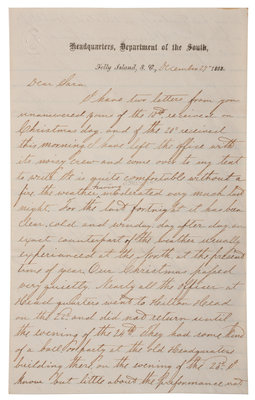 Headquarters, Department of the South,
Folly Island, S. C., December 27th 1863.
Dear Sara,
I have two letters from you
unanswered yours of the 15th received on
Christmas day and of the 20th received
this morning. I have left the office with
its noisy crew and come over to my tent
to write. It is quite comfortable without a
fire the weather having moderated very much last
night. For the last fortnight it has been
clear, cold and windy day after day, an
exact counterpart of the weather usually
experienced at the North at the present
time of year. Our Christmas passed
very quietly. Nearly all the officers at
Head quarters went to Hilton Head
on the and did not return until
the evening of the 24th They had some kind
of a ball party at the old Headquarters
building there, on the evening of the
know but little about the performance not